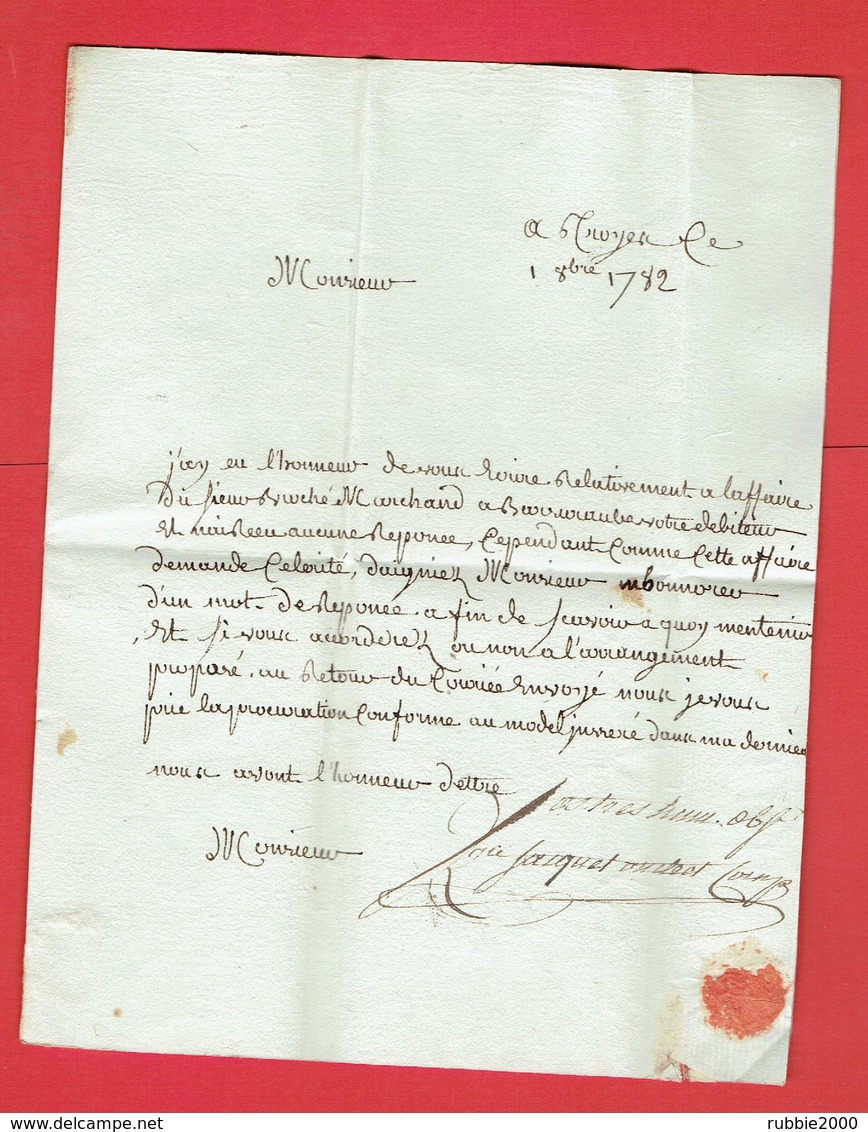 a Troyes Ce
1 8bre 1782
Monsieur
j'ay eu l'honneur de vous Ecrire Relativement a laffaire
Du sieur Broché Marchand a Barsuraube votre debiteur
Et nai Reeu aucune Reponce, Cependant Comme Cette affaire
demande Celerité, daigniez Monsieur mhonnorer
d'un mot de Reponce a fin de scavoir a quoy mentenir
Et si vous accorderez ou non a l'arrangement
proposé. au Retour du Courié Envoyé nous je vous
prie la procuration Conforme au model jnseré dans ma derniere
nous avont l'honneur dettre
Vos tres hum. obst
Monsieur
Jacquet Comp
rubbie2000
delcampe.net